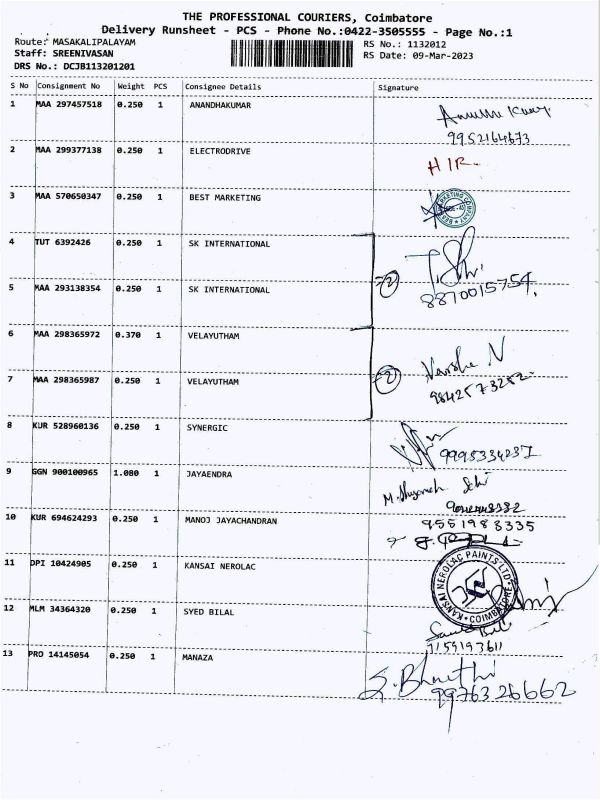 THE PROFESSIONAL COURIERS, Coimbatore
Delivery Runsheet - PCS - Phone No.:0422-3505555 - Page No.:1
Route: MASAKALIPALAYAM RS No.: 1132012
Staff: SREENIVASAN RS Date: 09-Mar-2023
DRS No.: DCJB113201201
S No Consignment No Weight PCS Consignee Details Signature
1 MAA 297457518 0.250 1 ANANDHAKUMAR
9952164673
2 MAA 299377138 0.250 1 ELECTRODRIVE
3 MAA 570650347 0.250 1 BEST MARKETING
4 TUT 6392426 0.250 1 SK INTERNATIONAL
2
5 MAA 293138354 0.250 1 SK INTERNATIONAL
8870015754.
6 MAA 298365972 0.370 1 VELAYUTHAM
Varsha N
2
7 MAA 298365987 0.250 1 VELAYUTHAM
8 KUR 528960136 0.250 1 SYNERGIC
9 GGN 900100965 1.080 1 JAYAENDRA
10 KUR 694624293 0.250 1 MANOJ JAYACHANDRAN
9551988335
11 DPI 10424905 0.250 1 KANSAI NEROLAC
KANSAI NEROLAC PAINTS LTD.
COIMBATORE
12 MLM 34364320 0.250 1 SYED BILAL
7159193611
13 PRO 14145054 0.250 1 MANAZA
S. Bharathi
9976326662